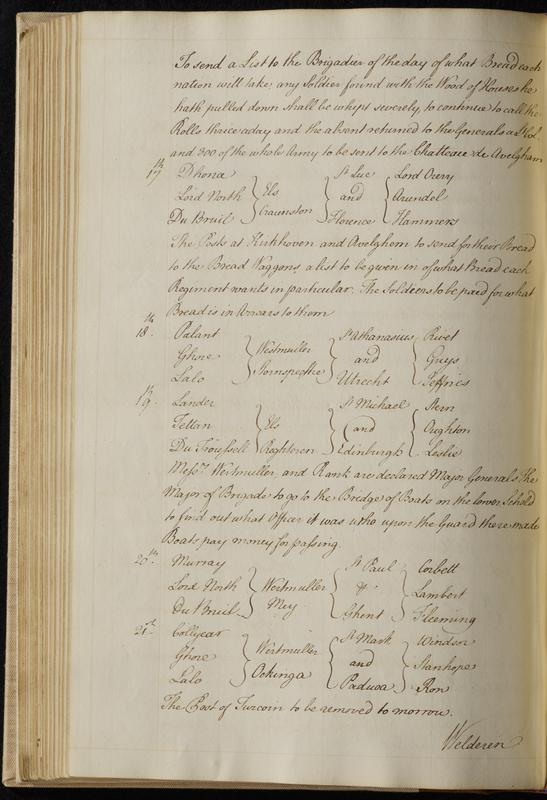 To send a List to the Brigadier of the day of what Bread each
nation will take; any Soldier found with the Wood of Houses he
hath pulled down shall be whipt severely, to continue to call the
Rolls thrice a day and the absent returned to the General
and 300 of the whole Army to be sent to the Chatteau de Avelghem
17th Dhona } Els } St Luc { Lord Orery
Lord North } and { Arundel
Du Bruil } Craunston } Florence { Hammers
The Posts at Kirkhoven and Avelghem to send for their Bread
to the Bread Waggons, a list to be given in of what Bread each
Regiment wants in particular. The Soldiers to be paid for what
Bread is in Arrears to them
18th Palant } Westmuller } St Athanasius } Rivet
Ghore } and } Guys
Lalo } Stornspecthe } Utrecht } Jeffries
19th Lander } Els } St Michael { Stern
Tettan } and { Oughton
Du Troussell } Reghteren } Edinburgh { Leslie
Messrs. Wertmuller and Rank are declared Major Generals. The
Major of Brigade to go to the Bridge of Boats on the lower Scheld
to find out what Officer it was who upon the Guard there made
Boats pay money for passing.
20th Murray } Wertmuller } St Paul } Corbett
Lord North } & } Lambert
Du Bruil } Mey } Ghent } Fleeming
21st Collyear } Wertmuller } St Mark } Windsor
Ghore } and } Stanhope
Lalo } Ockinga } Padua } Ron
The Post of Turcoin to be removed to morrow.
Welderen